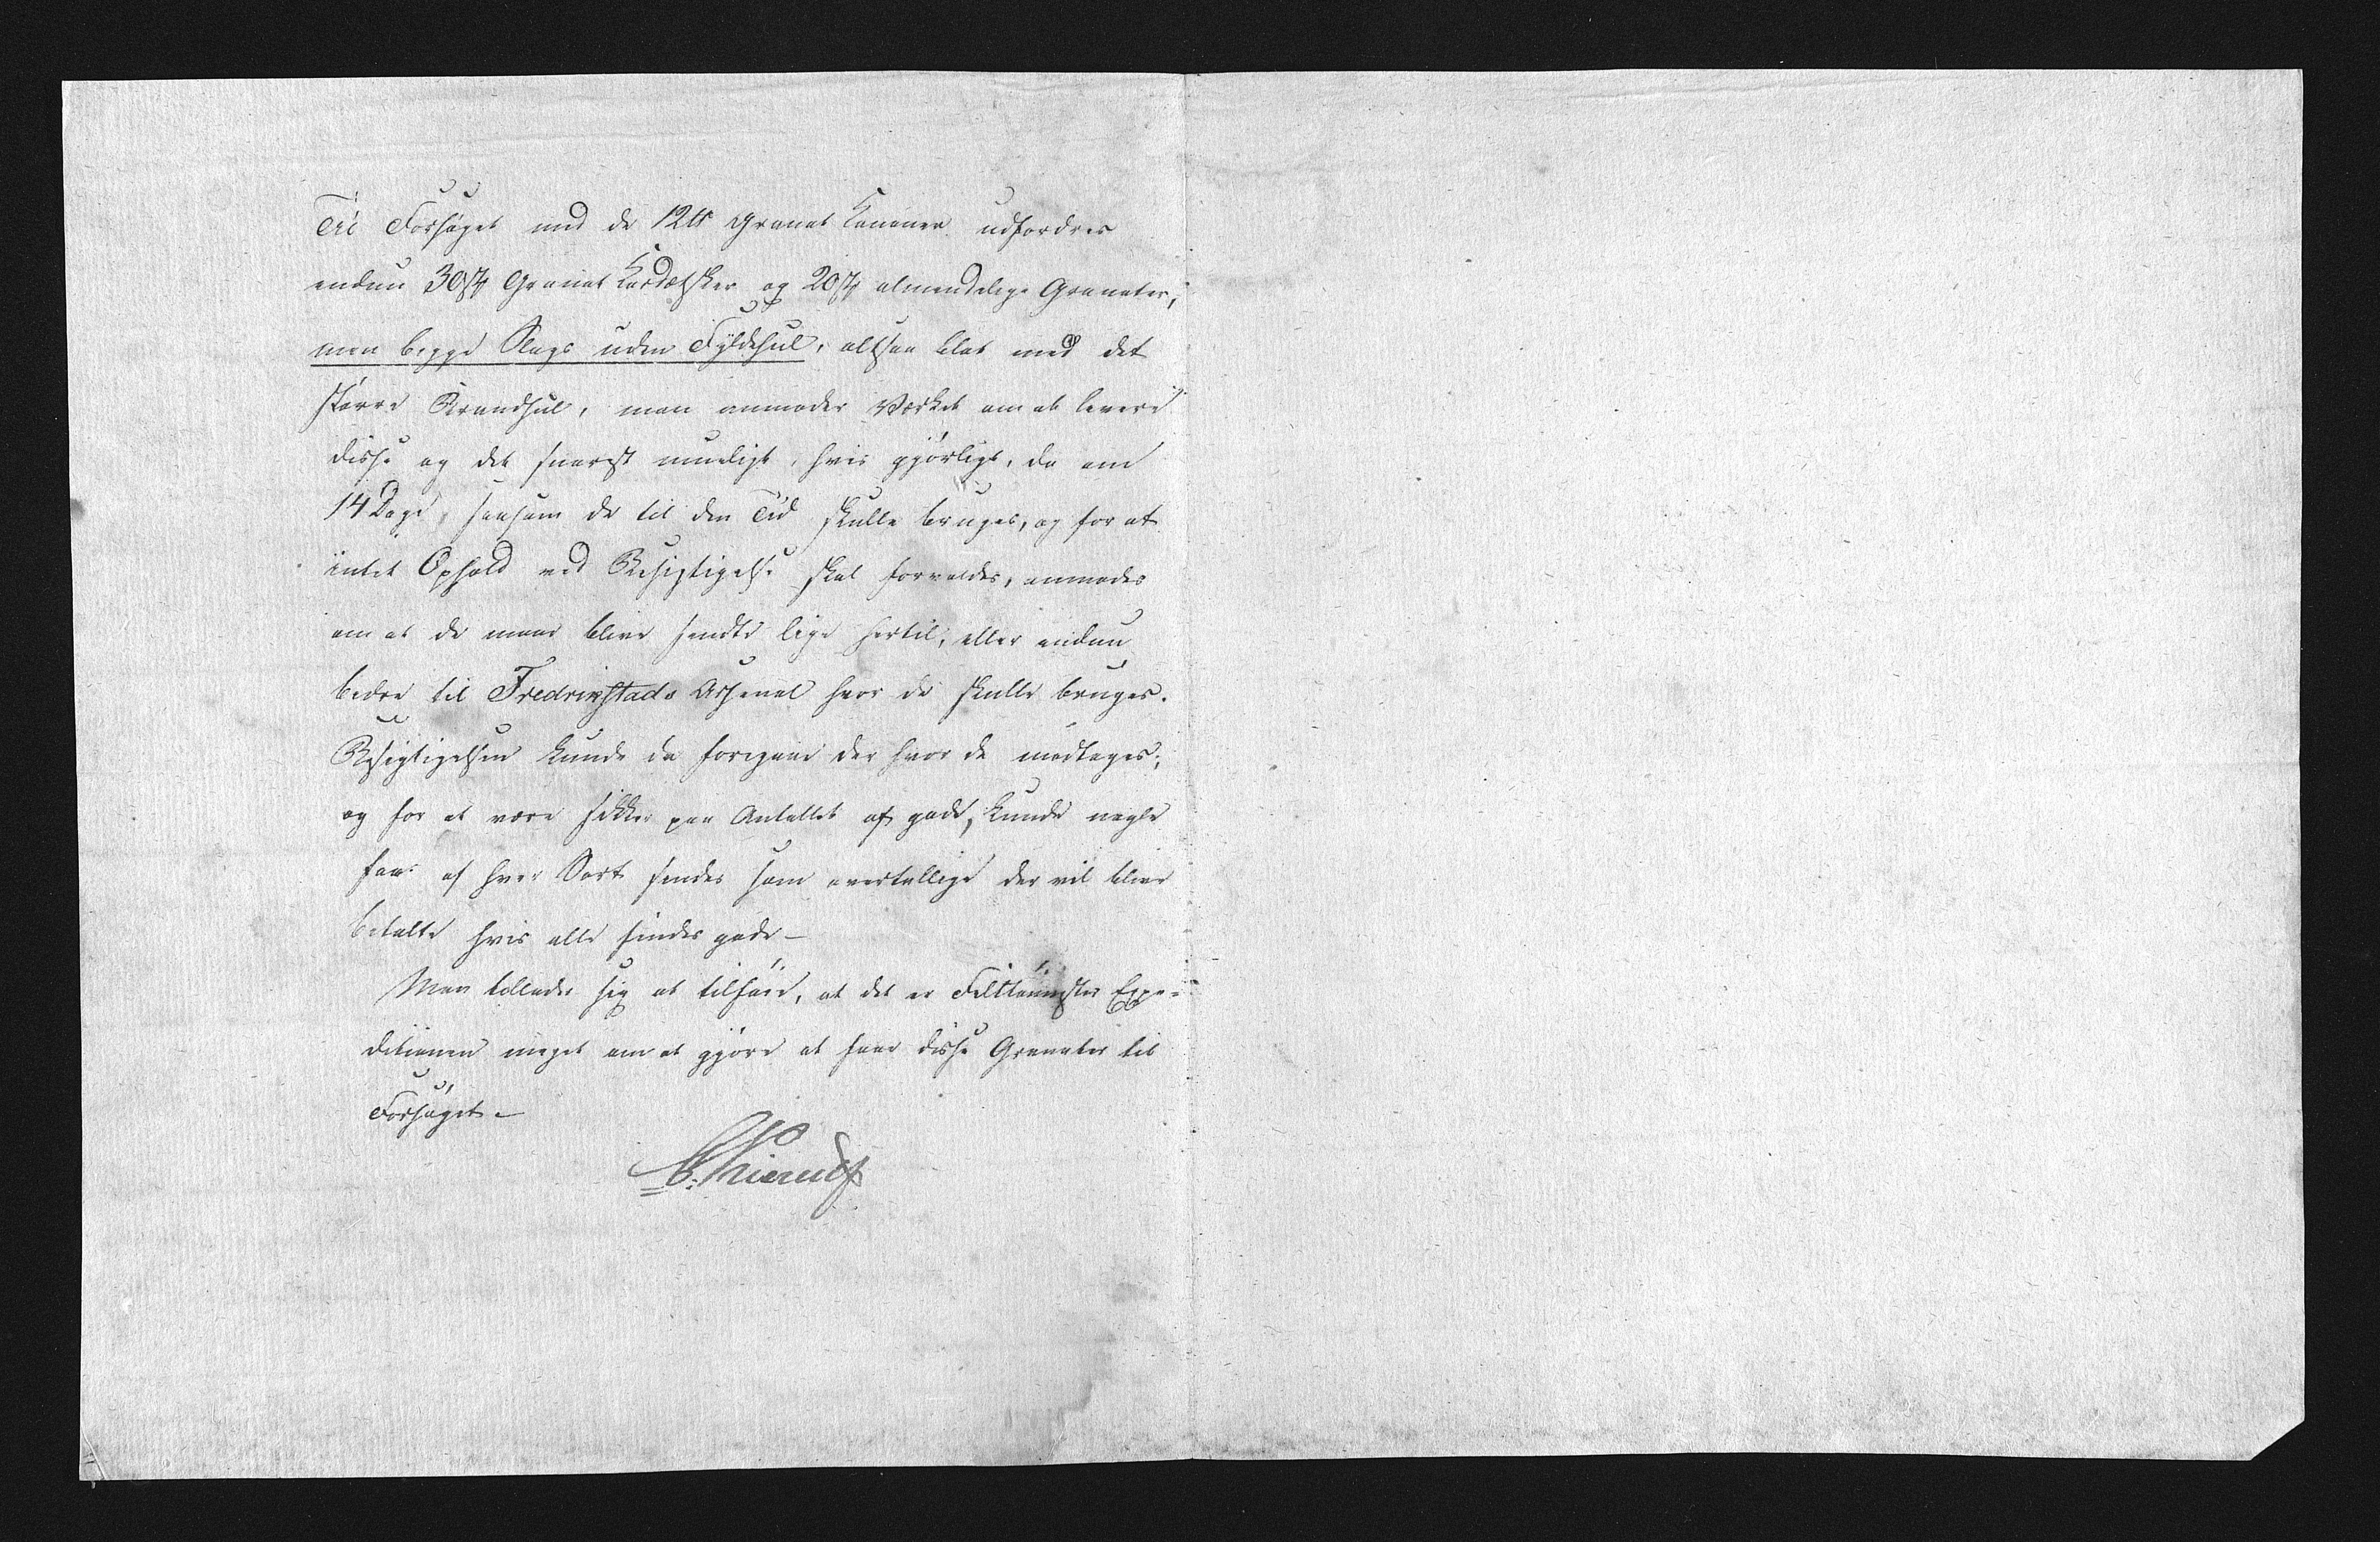 Til Forsøget med de 12 ℔ Granat Kanoner udfordres
endnu 30 st Granat Kardætsker og 20 st almendelige Granater,
men begge Slags uden Fyldehul, altsaa blot med det
større Brandhul, man anmoder Værket om at levere
disse og det snarest mueligt, hvis gjørligt, da om
14 Dage, saasom de til den Tid skulle bruges, og for at
intet Ophold ved Besigtigelse skal forvoldes, anmodes
om at de maae blive sendte lige hertil, eller endnu
bedre til Fredrikstads Arsenal hvor de skulle bruges.
Besigtigelsen kunde da foregaae der hvor de modtages;
og for at være sikker paa Antallet af gode, kunde nogle
faa af hver Sort sendes som overtallige der vil blive
betalte hvis alle findes gode –
Man tillader sig at tilføie, at det er Felttøimester Expe-
ditionen meget om at gjøre at faae disse Granater til
Forsøget –